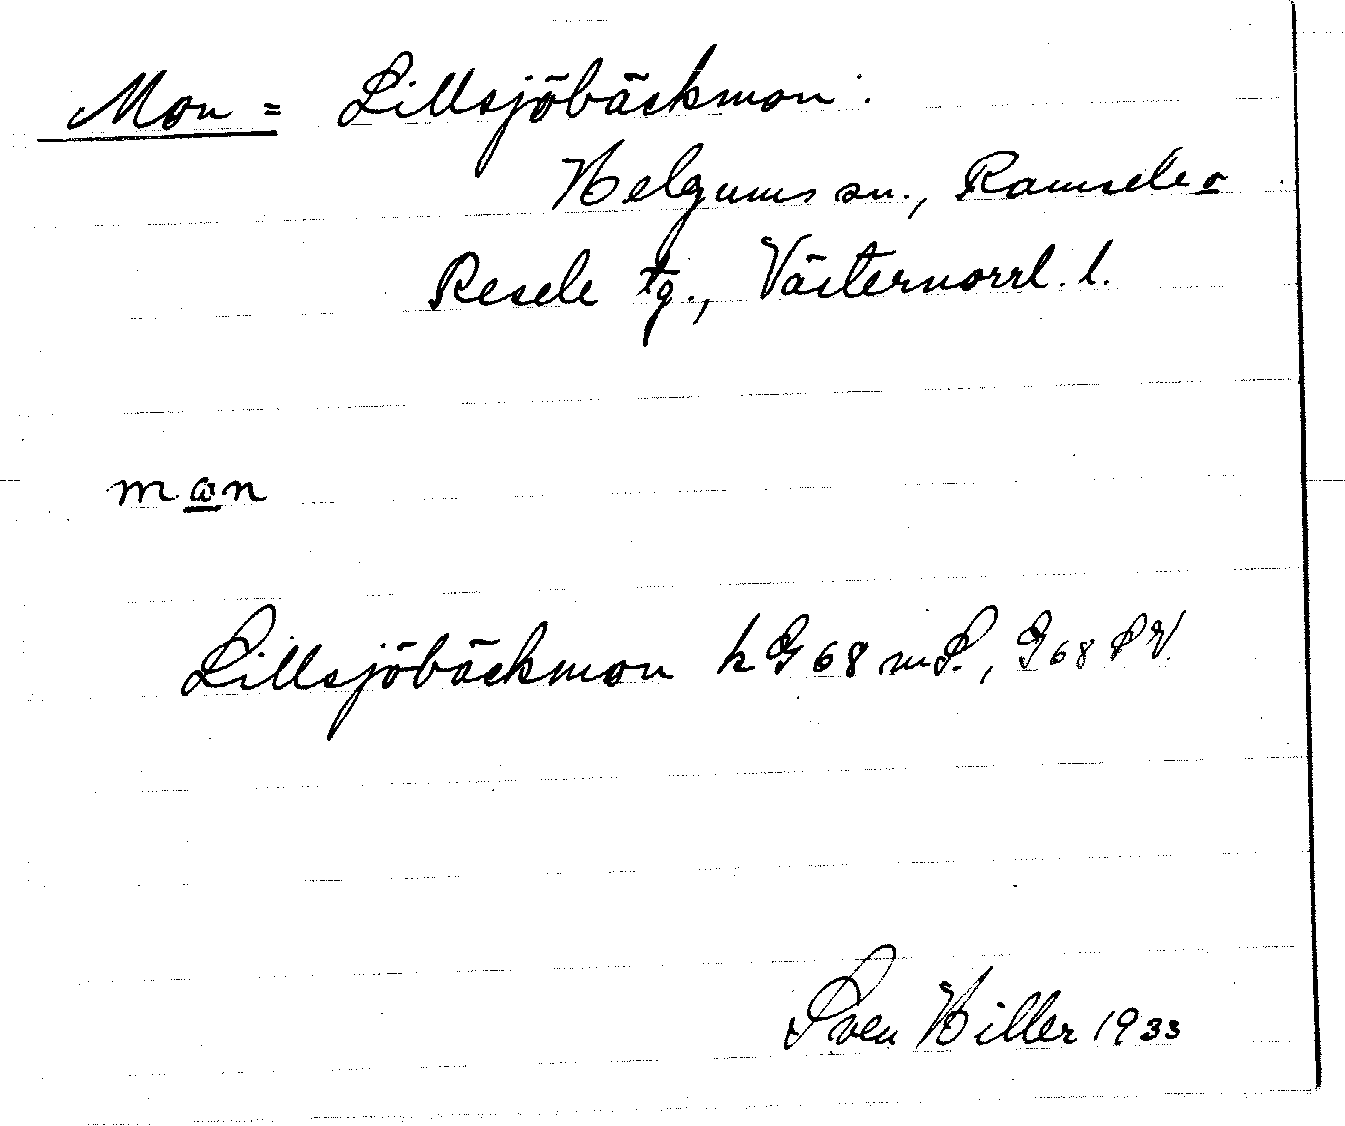 Mon = Lillsjöbäckmon.
Helgums sn., Ramsele o
Resele tg., Västernorrl. l.
man
Lillsjöbäckmon h G 68 m S., G 68 S V.
Sven Hiller 1933